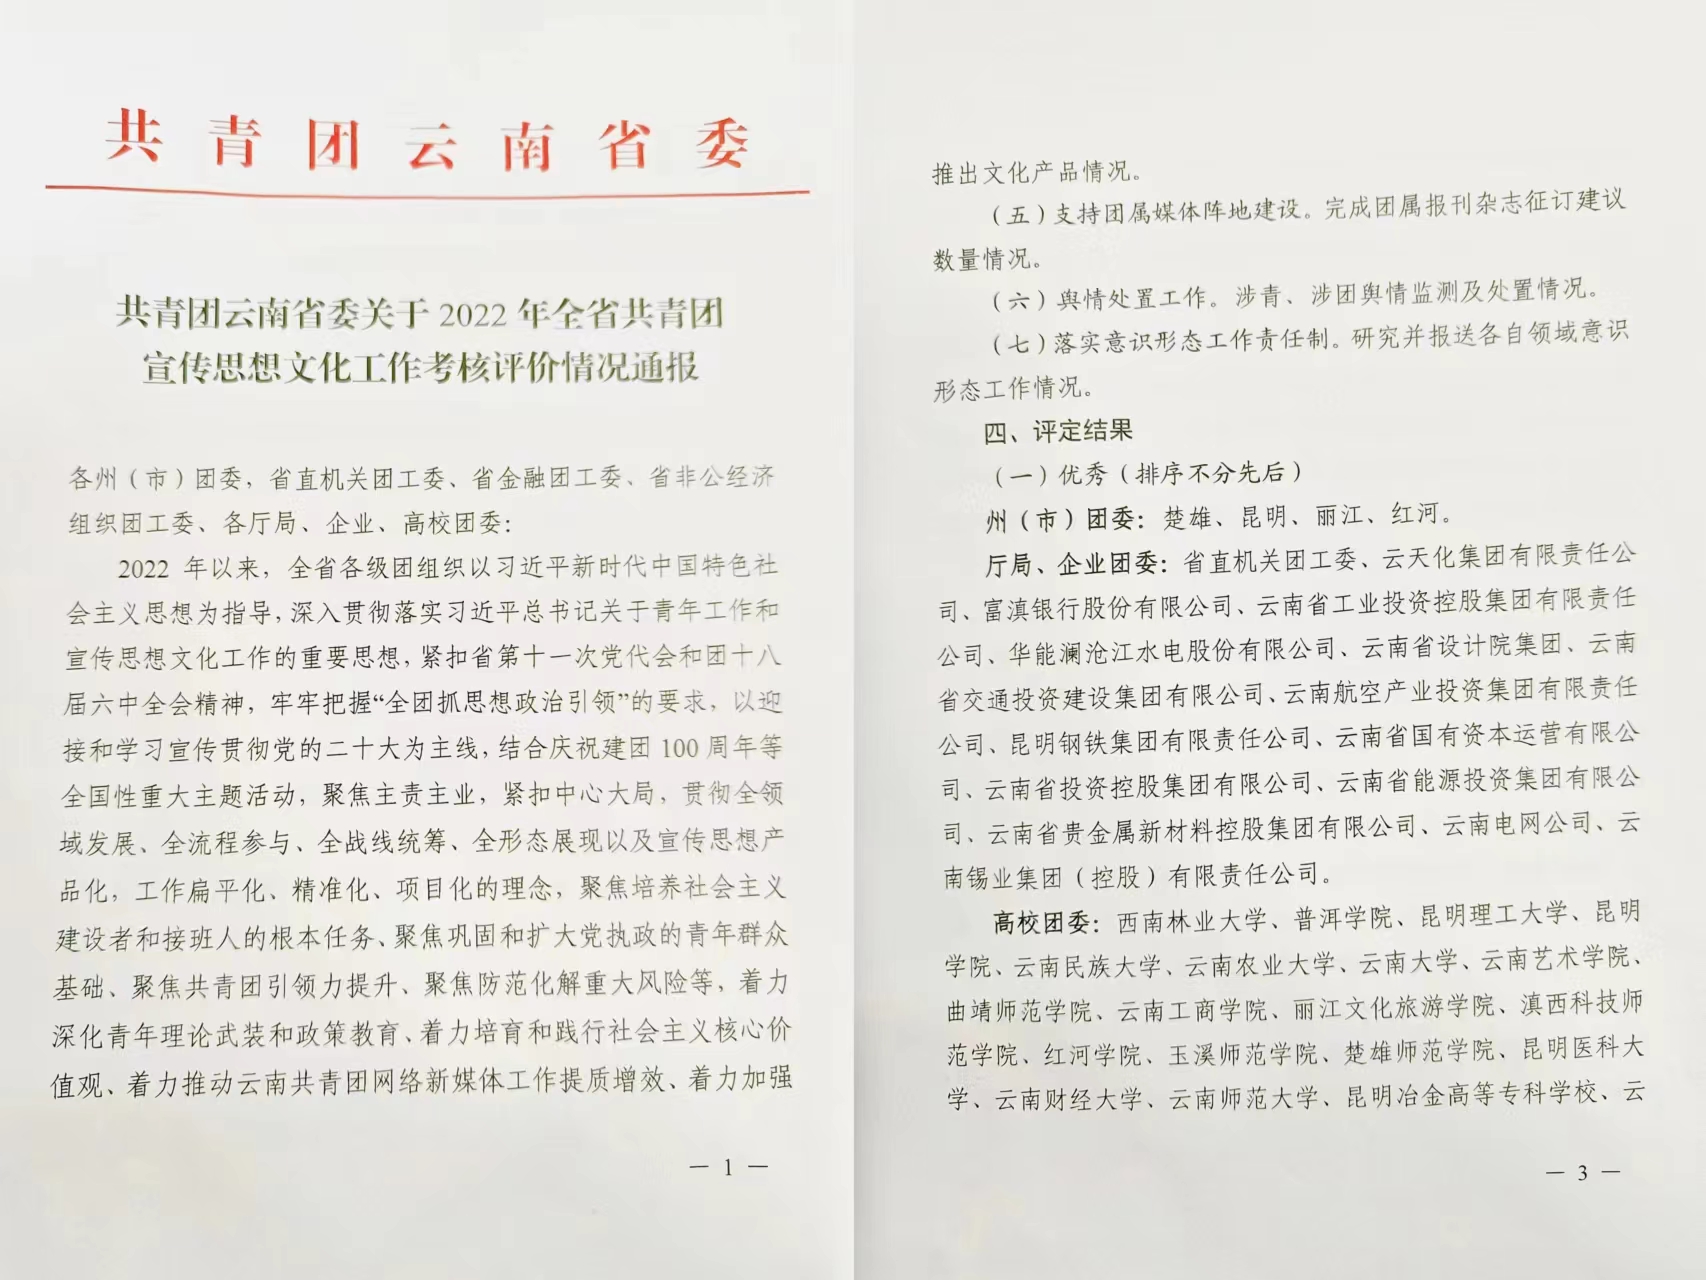 共青团云南省委
共青团云南省委关于 2022 年全省共青团
宣传思想文化工作考核评价情况通报
各州（市）团委，省直机关团工委、省金融团工委、省非公经济
组织团工委、各厅局、企业、高校团委：
2022 年以来，全省各级团组织以习近平新时代中国特色社
会主义思想为指导，深入贯彻落实习近平总书记关于青年工作和
宣传思想文化工作的重要思想，紧扣省第十一次党代会和团十八
届六中全会精神，牢牢把握“全团抓思想政治引领”的要求，以迎
接和学习宣传贯彻党的二十大为主线，结合庆祝建团 100 周年等
全国性重大主题活动，聚焦主责主业，紧扣中心大局，贯彻全领
域发展、全流程参与、全战线统筹、全形态展现以及宣传思想产
品化，工作扁平化、精准化、项目化的理念，聚焦培养社会主义
建设者和接班人的根本任务、聚焦巩固和扩大党执政的青年群众
基础、聚焦共青团引领力提升、聚焦防范化解重大风险等，着力
深化青年理论武装和政策教育、着力培育和践行社会主义核心价
值观、着力推动云南共青团网络新媒体工作提质增效、着力加强
— 1 —
推出文化产品情况。
（五）支持团属媒体阵地建设。完成团属报刊杂志征订建议
数量情况。
（六）舆情处置工作。涉青、涉团舆情监测及处置情况。
（七）落实意识形态工作责任制。研究并报送各自领域意识
形态工作情况。
四、评定结果
（一）优秀（排序不分先后）
州（市）团委：楚雄、昆明、丽江、红河。
厅局、企业团委：省直机关团工委、云天化集团有限责任公
司、富滇银行股份有限公司、云南省工业投资控股集团有限责任
公司、华能澜沧江水电股份有限公司、云南省设计院集团、云南
省交通投资建设集团有限公司、云南航空产业投资集团有限责任
公司、昆明钢铁集团有限责任公司、云南省国有资本运营有限公
司、云南省投资控股集团有限公司、云南省能源投资集团有限公
司、云南省贵金属新材料控股集团有限公司、云南电网公司、云
南锡业集团（控股）有限责任公司。
高校团委：西南林业大学、普洱学院、昆明理工大学、昆明
学院、云南民族大学、云南农业大学、云南大学、云南艺术学院、
曲靖师范学院、云南工商学院、丽江文化旅游学院、滇西科技师
范学院、红河学院、玉溪师范学院、楚雄师范学院、昆明医科大
学、云南财经大学、云南师范大学、昆明冶金高等专科学校、云
— 3 —